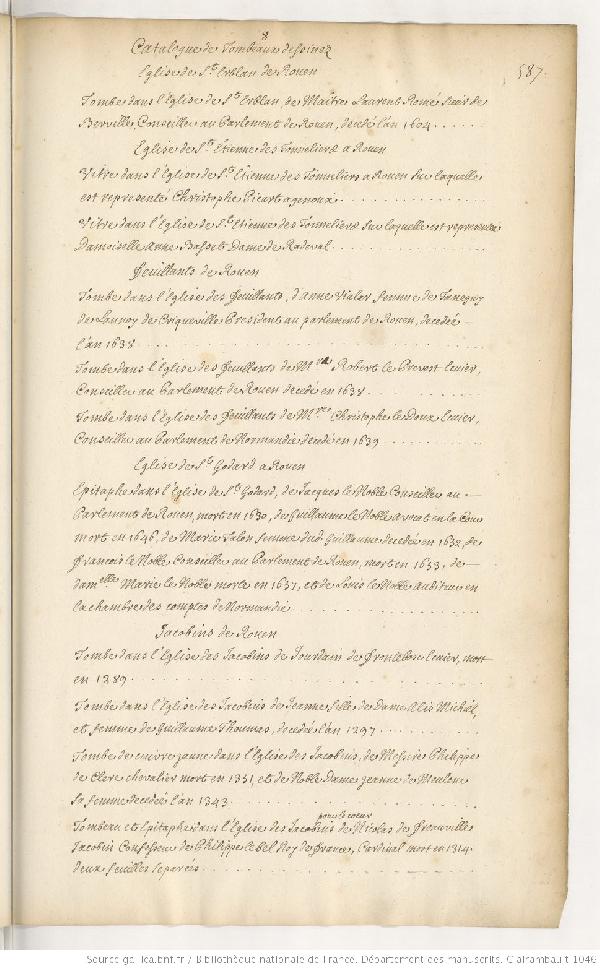 8
Catalogue de Tombeaux dessinez
587.
Eglise de St. Erblan de Rouen
Tombe dans l'Eglise de St. Erblan, de Maitre Laurent Romé sieur de
Berville, Conseiller au Parlement de Rouen, decedé l'an 1604
Eglise de St. Etienne des Tonneliers a Rouen
Vitre dans l'Eglise de St. Etienne des Tonneliers a Rouen sur laquelle
est representé Christophe Picart a genoux
Vitre dans l'Eglise de St. Etienne des Tonneliers sur laquelle est representée
Damoiselle Anne Basset Dame de Radeval
Feuillants de Rouen
Tombe dans l'Eglise des Feuillants, d'Anne Vialar femme de
de Launoy de Criqueville President au parlement de Rouen, decedée
l'an 1638
Tombe dans l'Eglise des Feuillants de Mre Robert le Prevost Ecuier,
Conseiller au Parlement de Rouen decedé en 1638
Tombe dans l'Eglise des Feuillants de Mre Christophe le Doux Ecuier,
Conseiller au Parlement de Normandie decedé en 1639
Eglise de St. Godard a Rouen
Epitaphe dans l'Eglise de St. Godard, de Jacques le Noble Conseiller au
Parlement de Rouen, mort en 1630, de Guillaume le Noble avocat en la Cour
mort en 1646, de Marie Valon femme dud. Guillaume decedée en 1632, de
Francois le Noble Conseiller au Parlement de Rouen, mort en 1633, de
damelle Marie le Noble morte en 1637, et de Louis le Noble auditeur en
la chambre des comptes de Normandie
Jacobins de Rouen
Tombe dans l'Eglise des Jacobins de Jourdain de Frontebosc Ecuier, mort
en 1389
Tombe dans l'Eglise des Jacobins de Jeanne fille de Dame Alis Michiel,
et femme de Guillaume Thoumas, decedée l'an 1297
Tombe de cuivre jaune dans l'Eglise des Jacobins, de Messire Philippe
de Clere chevalier mort en 1351, et de Noble Dame Jeanne de Meulenc
sa femme decedée l'an 1343
pour le coeur
Tombeau et Epitaphe dans l'Eglise des Jacobins de Nicolas de Freauville
Jacobin Confesseur de Philippe le bel Roy de France, Cardinal mort en 1314
deux feuilles separées
Source gallica.bnf.fr / Bibliothèque nationale de France. Département des manuscrits. Clairambault 1046